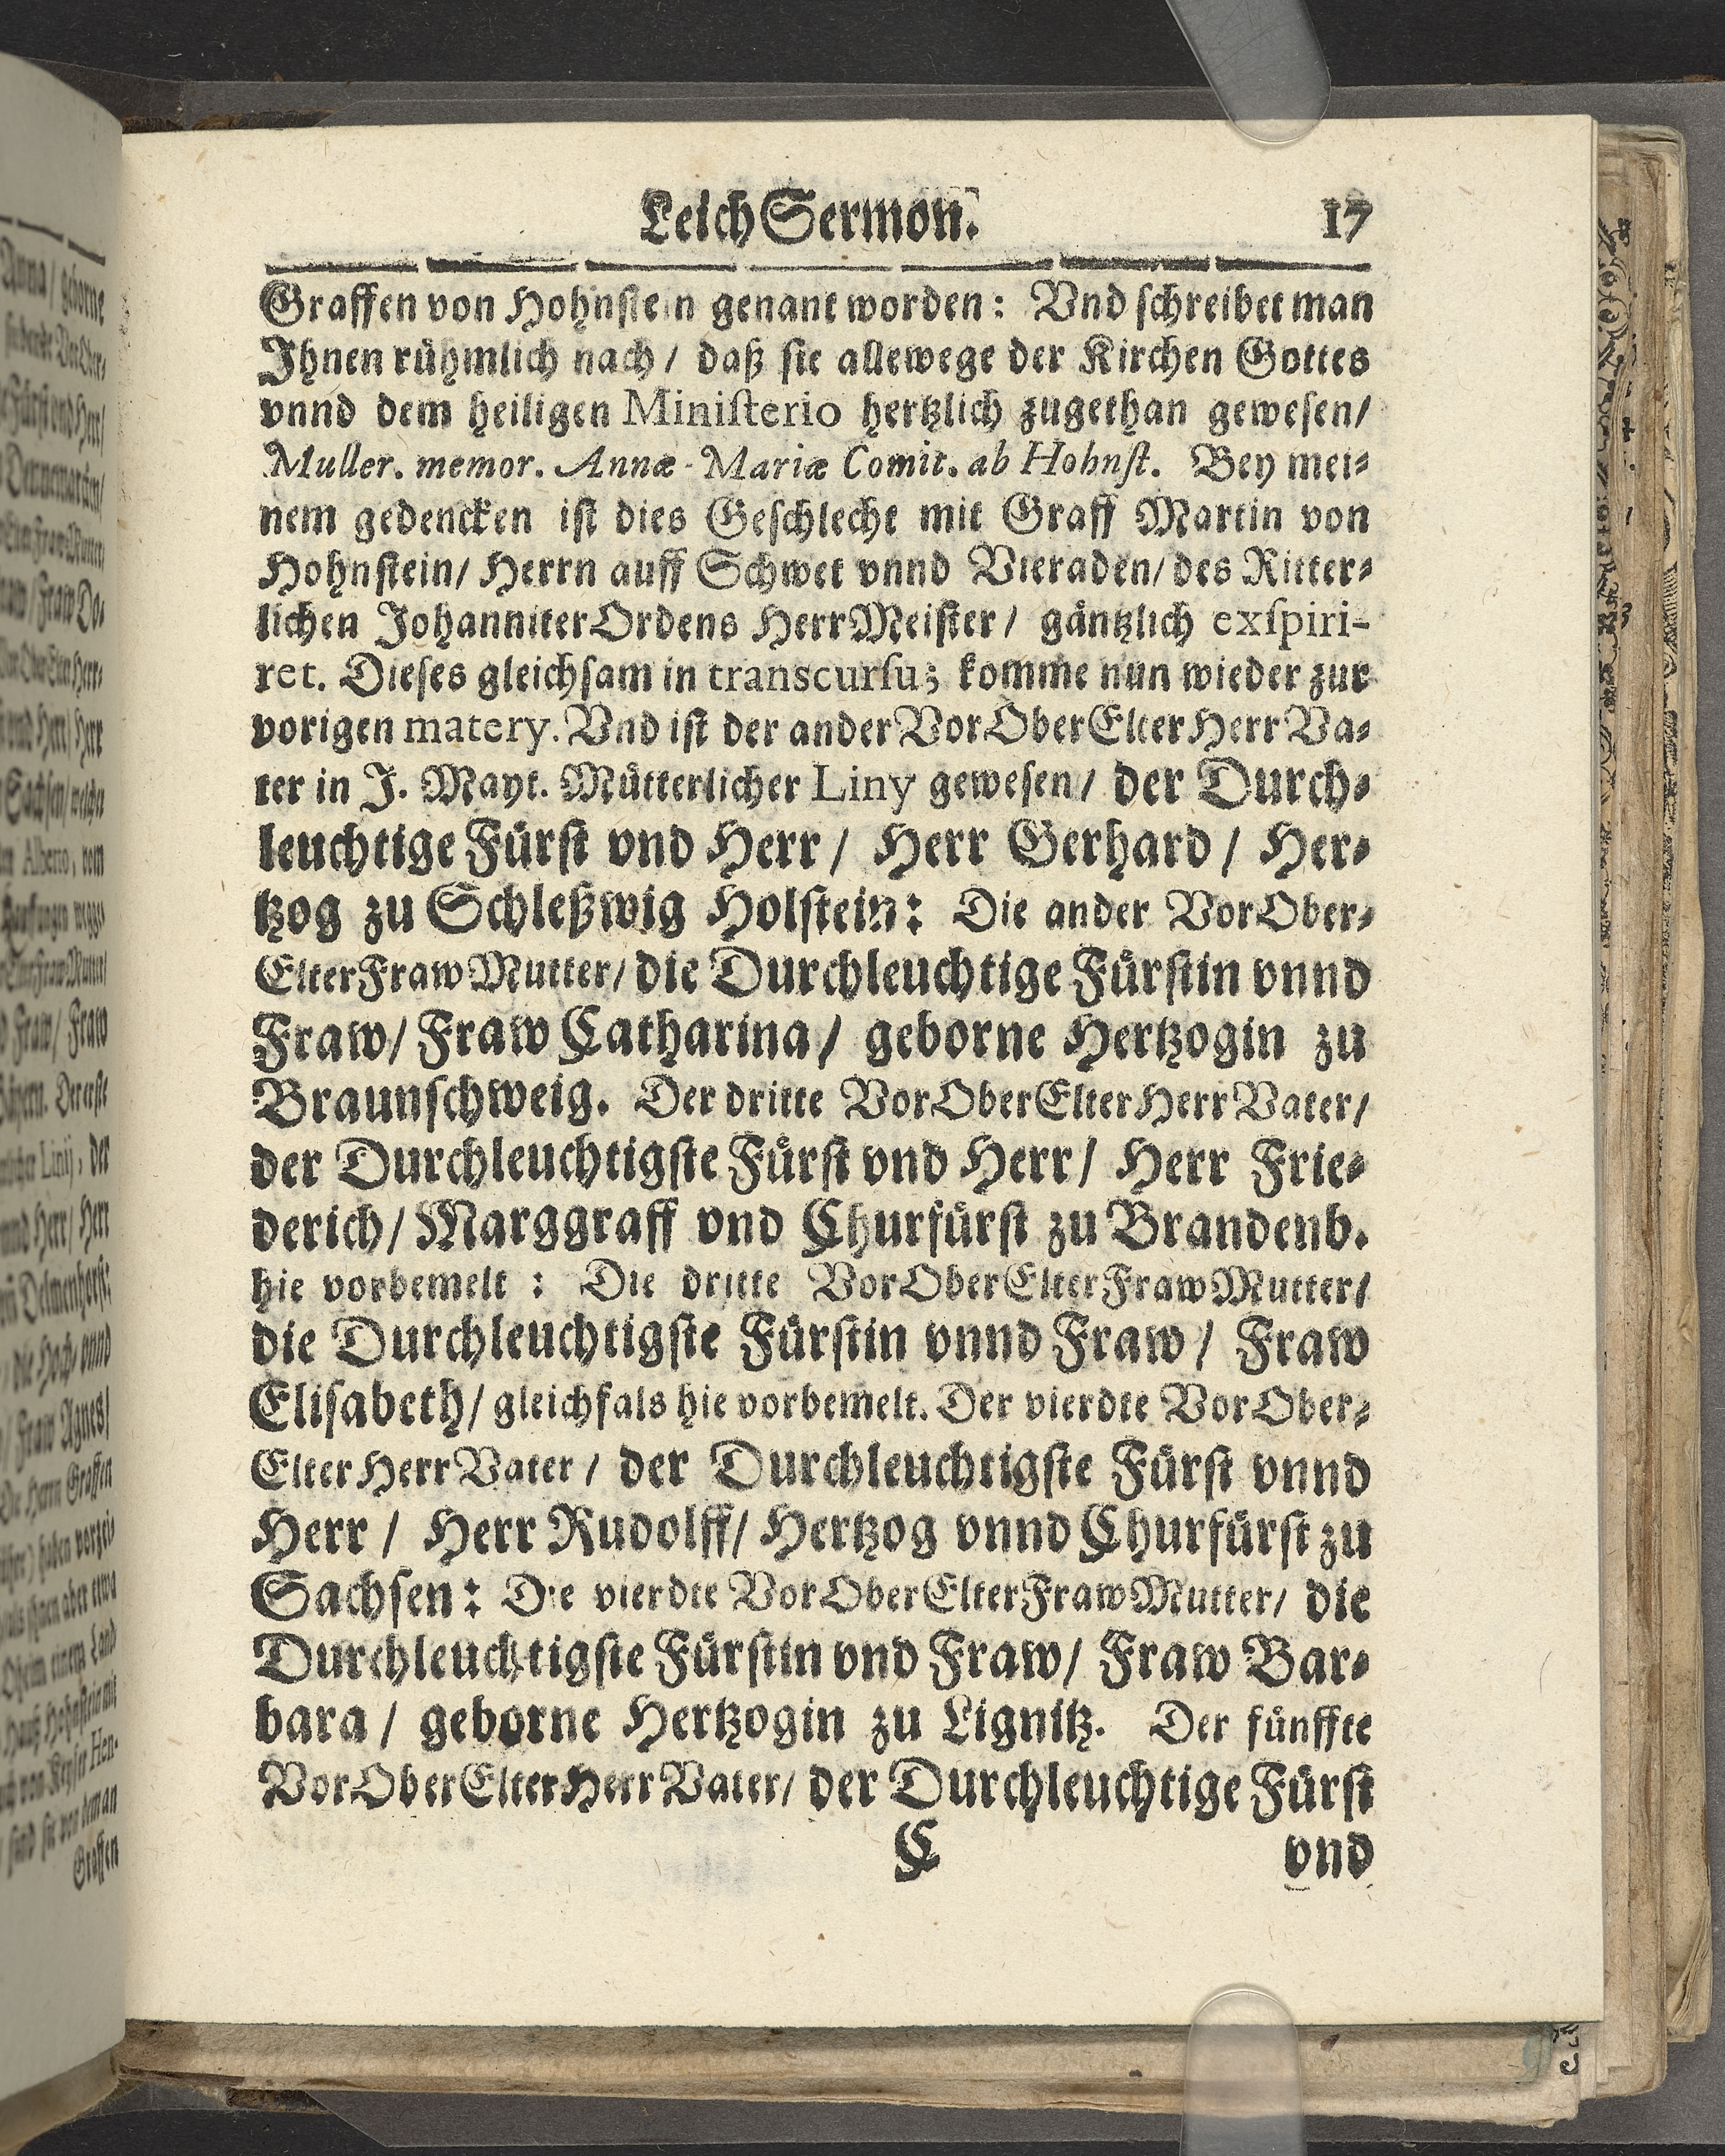 Leich Sermon. 17
Graffen von Hohnstein genant worden: Vnd schreibet man
Ihnen rühmlich nach / daß sie allewege der Kirchen Gottes
vnnd dem heiligen Ministerio hertzlich zugethan gewesen/
Muller. memor. Annæ-Mariæ Comit. ab Hohnst. Bey mei-
nem gedencken ist dies Geschlecht mit Graff Martin von
Hohnstein/ Herrn auff Schwet vnnd Vieraden/ des Ritter-
lichen Johanniter Ordens HerrMeister / gäntzlich exspiri-
ret. Dieses gleichsam in transcursu; komme nun wieder zur
vorigen matery. Vnd ist der ander VorOberElterHerrVa-
ter in J. Mayt. Mütterlicher Liny gewesen / der Durch-
leuchtige Fürst vnd Herr / Herr Gerhard / Her-
tzog zu Schleßwig Holstein: Die ander VorOber-
ElterFrawMutter/ die Durchleuchtige Fürstin vnnd
Fraw/ Fraw Catharina / geborne Hertzogin zu
Braunschweig. Der dritte VorOberElterHerrVater/
der Durchleuchtigste Fürst vnd Herr / Herr Frie-
derich / Marggraff vnd Churfürst zu Brandenb.
hie vorbemelt : Die dritte VorOberElterFrawMutter/
die Durchleuchtigste Fürstin vnnd Fraw / Fraw
Elisabeth / gleichfals hie vorbemelt. Der vierdte VorOber-
ElterHerrVater / der Durchleuchtigste Fürst vnnd
Herr / Herr Rudolff/ Hertzog vnnd Churfürst zu
Sachsen: Die vierdte VorOberElterFrawMutter/ die
Durchleuchtigste Fürstin vnd Fraw/ Fraw Bar-
bara / geborne Hertzogin zu Lignitz. Der fünffte
VorOberElterHerrVater/ der Durchleuchtige Fürst
C vnd